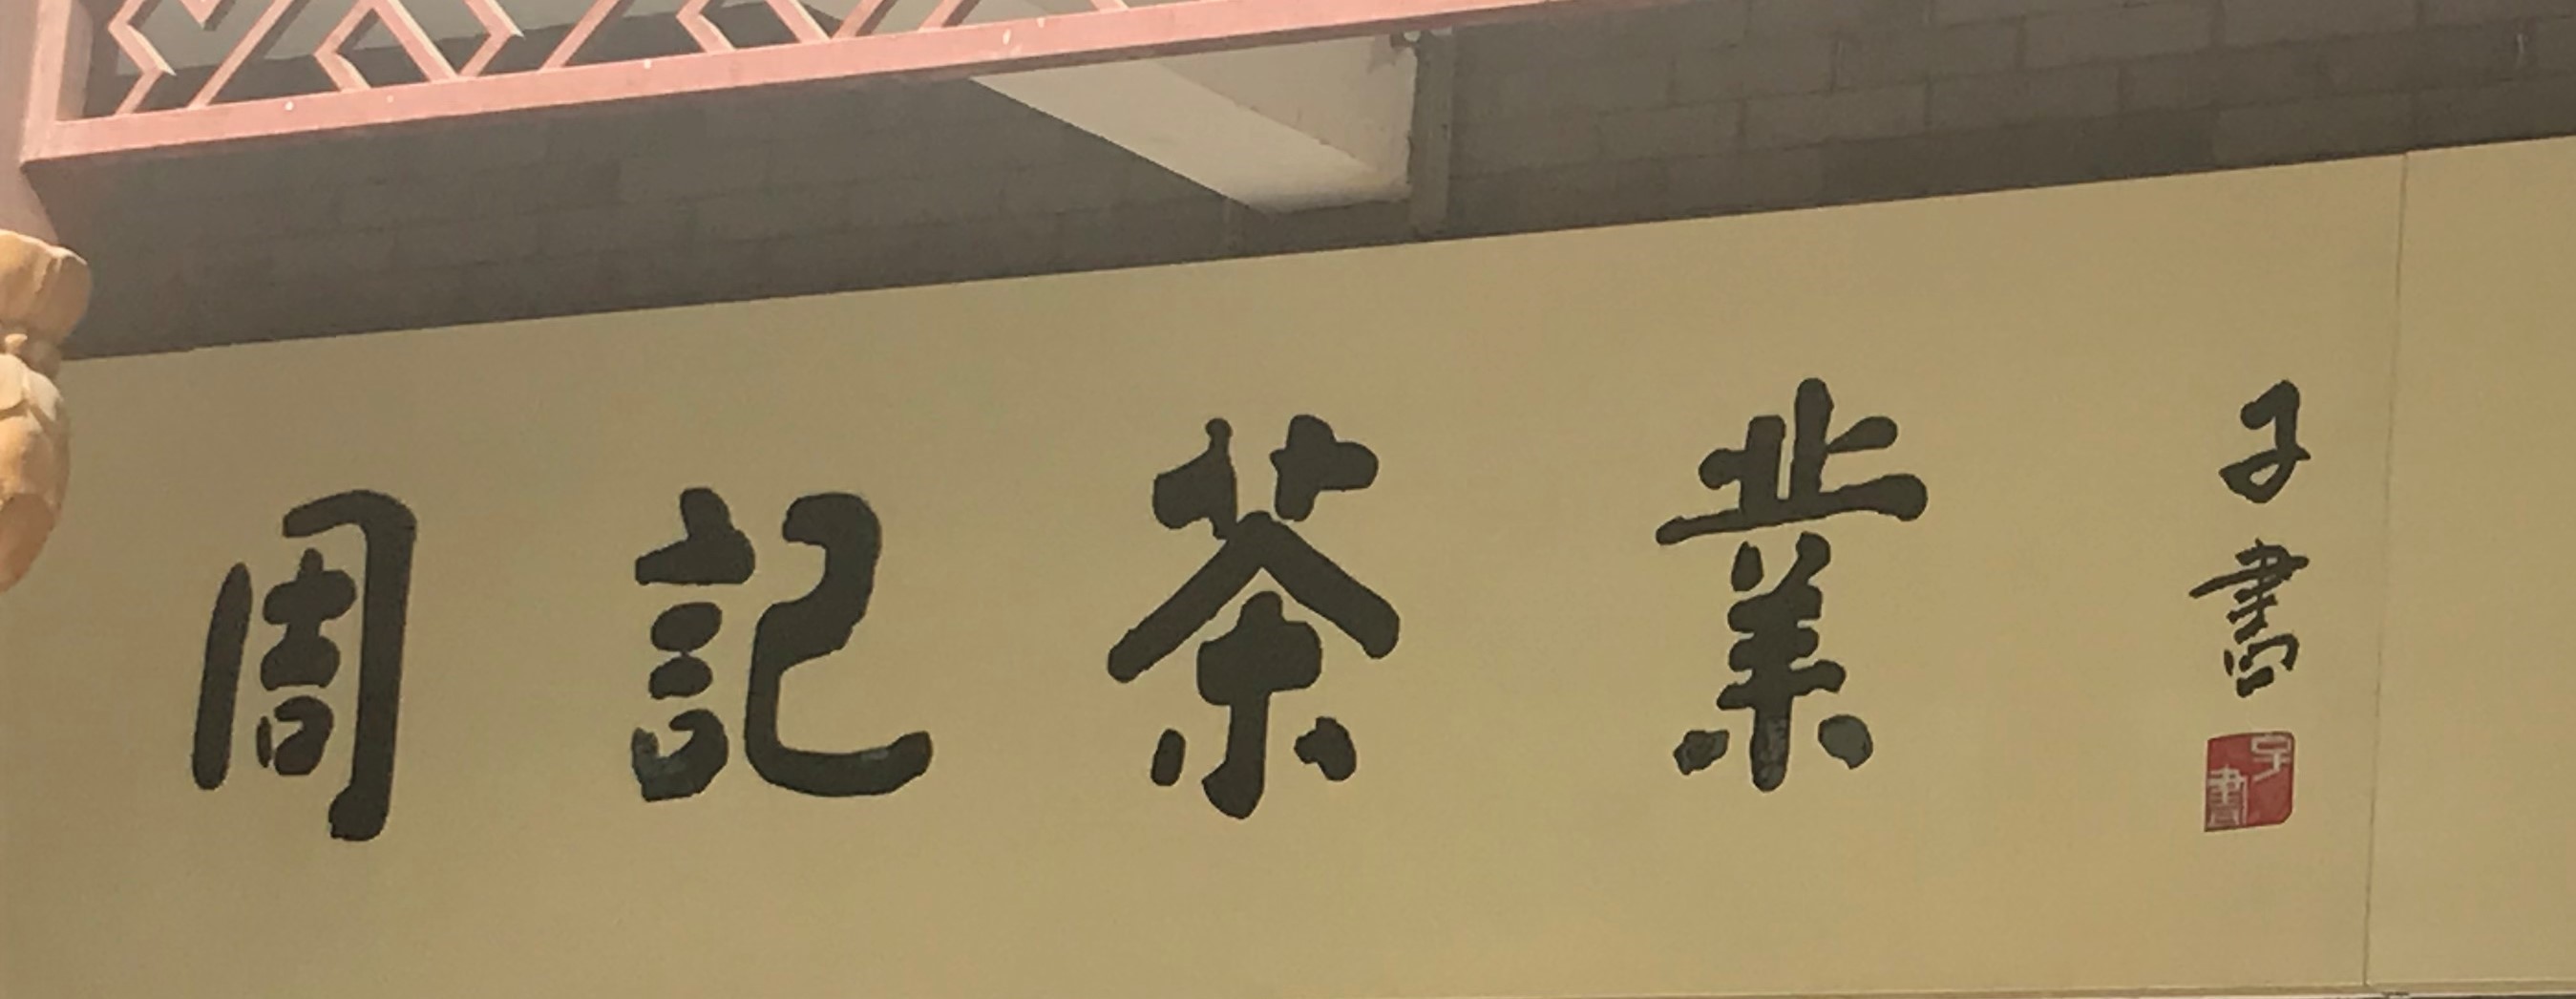 周記茶業
子書
子書